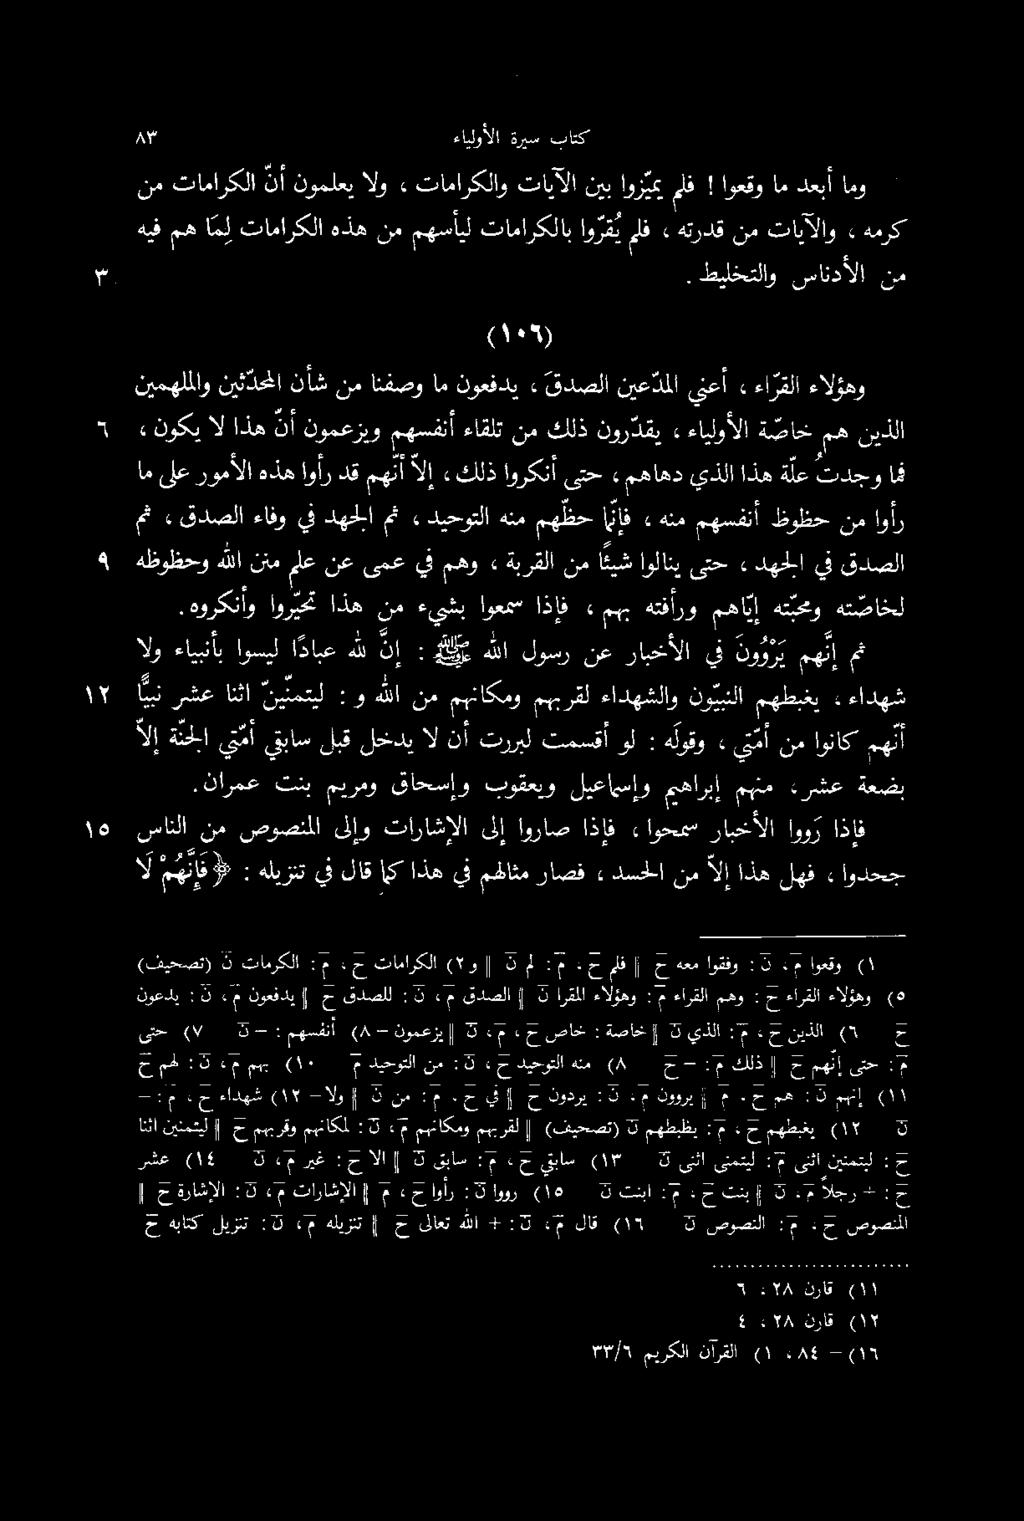 كتاب سيرة الأولياء ٨٣
وما أبعد ما وقعوا ! فلم يميّزوا بين الآيات والكرامات ، ولا يعلمون أنّ الكرامات من
كرمه ، والآيات من قدرته ، فلم يُقرّوا بالكرامات ليأسهم من هذه الكرامات لِمَا هم فيه
من الأدناس والتخليط . ٣
(١٠٦)
وهؤلاء القرّاء ، أعني المدّعين الصدقَ ، يدفعون ما وصفنا من شأن المحدّثين والملهمين
الذين هم خاصّة الأولياء ، يقدّرون ذلك من تلقاء أنفسهم ويزعمون أنّ هذا لا يكون ، ٦
فما وجدتُ علّة هذا الذي دهاهم ، حتى أنكروا ذلك ، إلاّ أنّهم قد رأوا هذه الأمور على ما
رأوا من حظوظ أنفسهم منه ، فإنّما حظّهم منه التوحيد ، ثم الجهد في وفاء الصدق ، ثم
الصدق في الجهد ، حتى ينالوا شيئًا من القربة ، وهم في عمى عن علم منن الله وحظوظه ٩
لخاصّته ومحبّته إيّاهم ورأفته بهم ، فإذا سمعوا بشيء من هذا تحيّروا وأنكروه .
ثم إنّهم يَرْوُونَ في الأخبار عن رسول الله ﷺ : إنّ لله عبادًا ليسوا بأنبياء ولا
شهداء ، يغبطهم النبيّون والشهداء لقربهم ومكانهم من الله و : ليتمنّينّ اثنا عشر نبيًّا ١٢
أنّهم كانوا من أمّتي ، وقولَه : لو أقسمت لبررت أن لا يدخل قبل سابقي أمّتي الجنّة إلاّ
بضعة عشر ، منهم إبراهيم وإسماعيل ويعقوب وإسحاق ومريم بنت عمران .
فإذا رَووا الأخبار سمحوا ، فإذا صاروا إلى الإشارات وإلى المنصوص من الناس ١٥
جحدوا ، فهل هذا إلاّ من الحسد ، فصار مثالهم في هذا كما قال في تنزيله : ﴿ فَإِنَّهُمْ لَا
١) وقعوا م ، ن : وقفوا معه ح || فلم ح ، م : لم ن || و ٢) الكرامات ح ، م : الكرمات ن (تصحيف)
٥) وهؤلاء القراء ح : وهم القراء م : وهؤلاء المقرا ن || الصدق م ، ن : للصدق ح || يدفعون م ، ن : يدعون
ح ٦) الذين ح ، م : الذي ن || خاصة : خاص ح ، م ، ن || يزعمون – ٨) أنفسهم : – ن ٧) حتى
م : حتى إنّهم ح || ذلك م : – ح ٨) منه التوحيد ح ، ن : من التوحيد م ١٠) بهم م ، ن : لهم ح
١١) إنهم ن : هم ح ، م || يروون م ، ن : يردون ح || في ح ، م : من ن || ولا – ١٢) شهداء ح ، م : –
ن ١٢) يغبطهم ح ، م : يظبطهم ن (تصحيف) || لقربهم ومكانهم م ، ن : لمكانهم وقربهم ح || ليتمنين اثنا
ح : ليتمنين اثنى م : ليتمنى اثنى ن ١٣) سابقي ح ، م : سابق ن || الا ح : غير م ، ن ١٤) عشر
ح : + رجلاً م ، ن || بنت ح ، م : ابنت ن ١٥) رووا ن : رأوا ح ، م || الإشارات م ، ن : الإشارة ح ||
المنصوص ح ، م : النصوص ن ١٦) قال م ، ن : + الله تعالى ح || تنزيله م ، ن : تنزيل كتابه ح
١١) قارن ٢٨ ، ٦
١٢) قارن ٢٨ ، ٤
١٦) – ٨٤ ، ١) القرآن الكريم ٣٣/٦